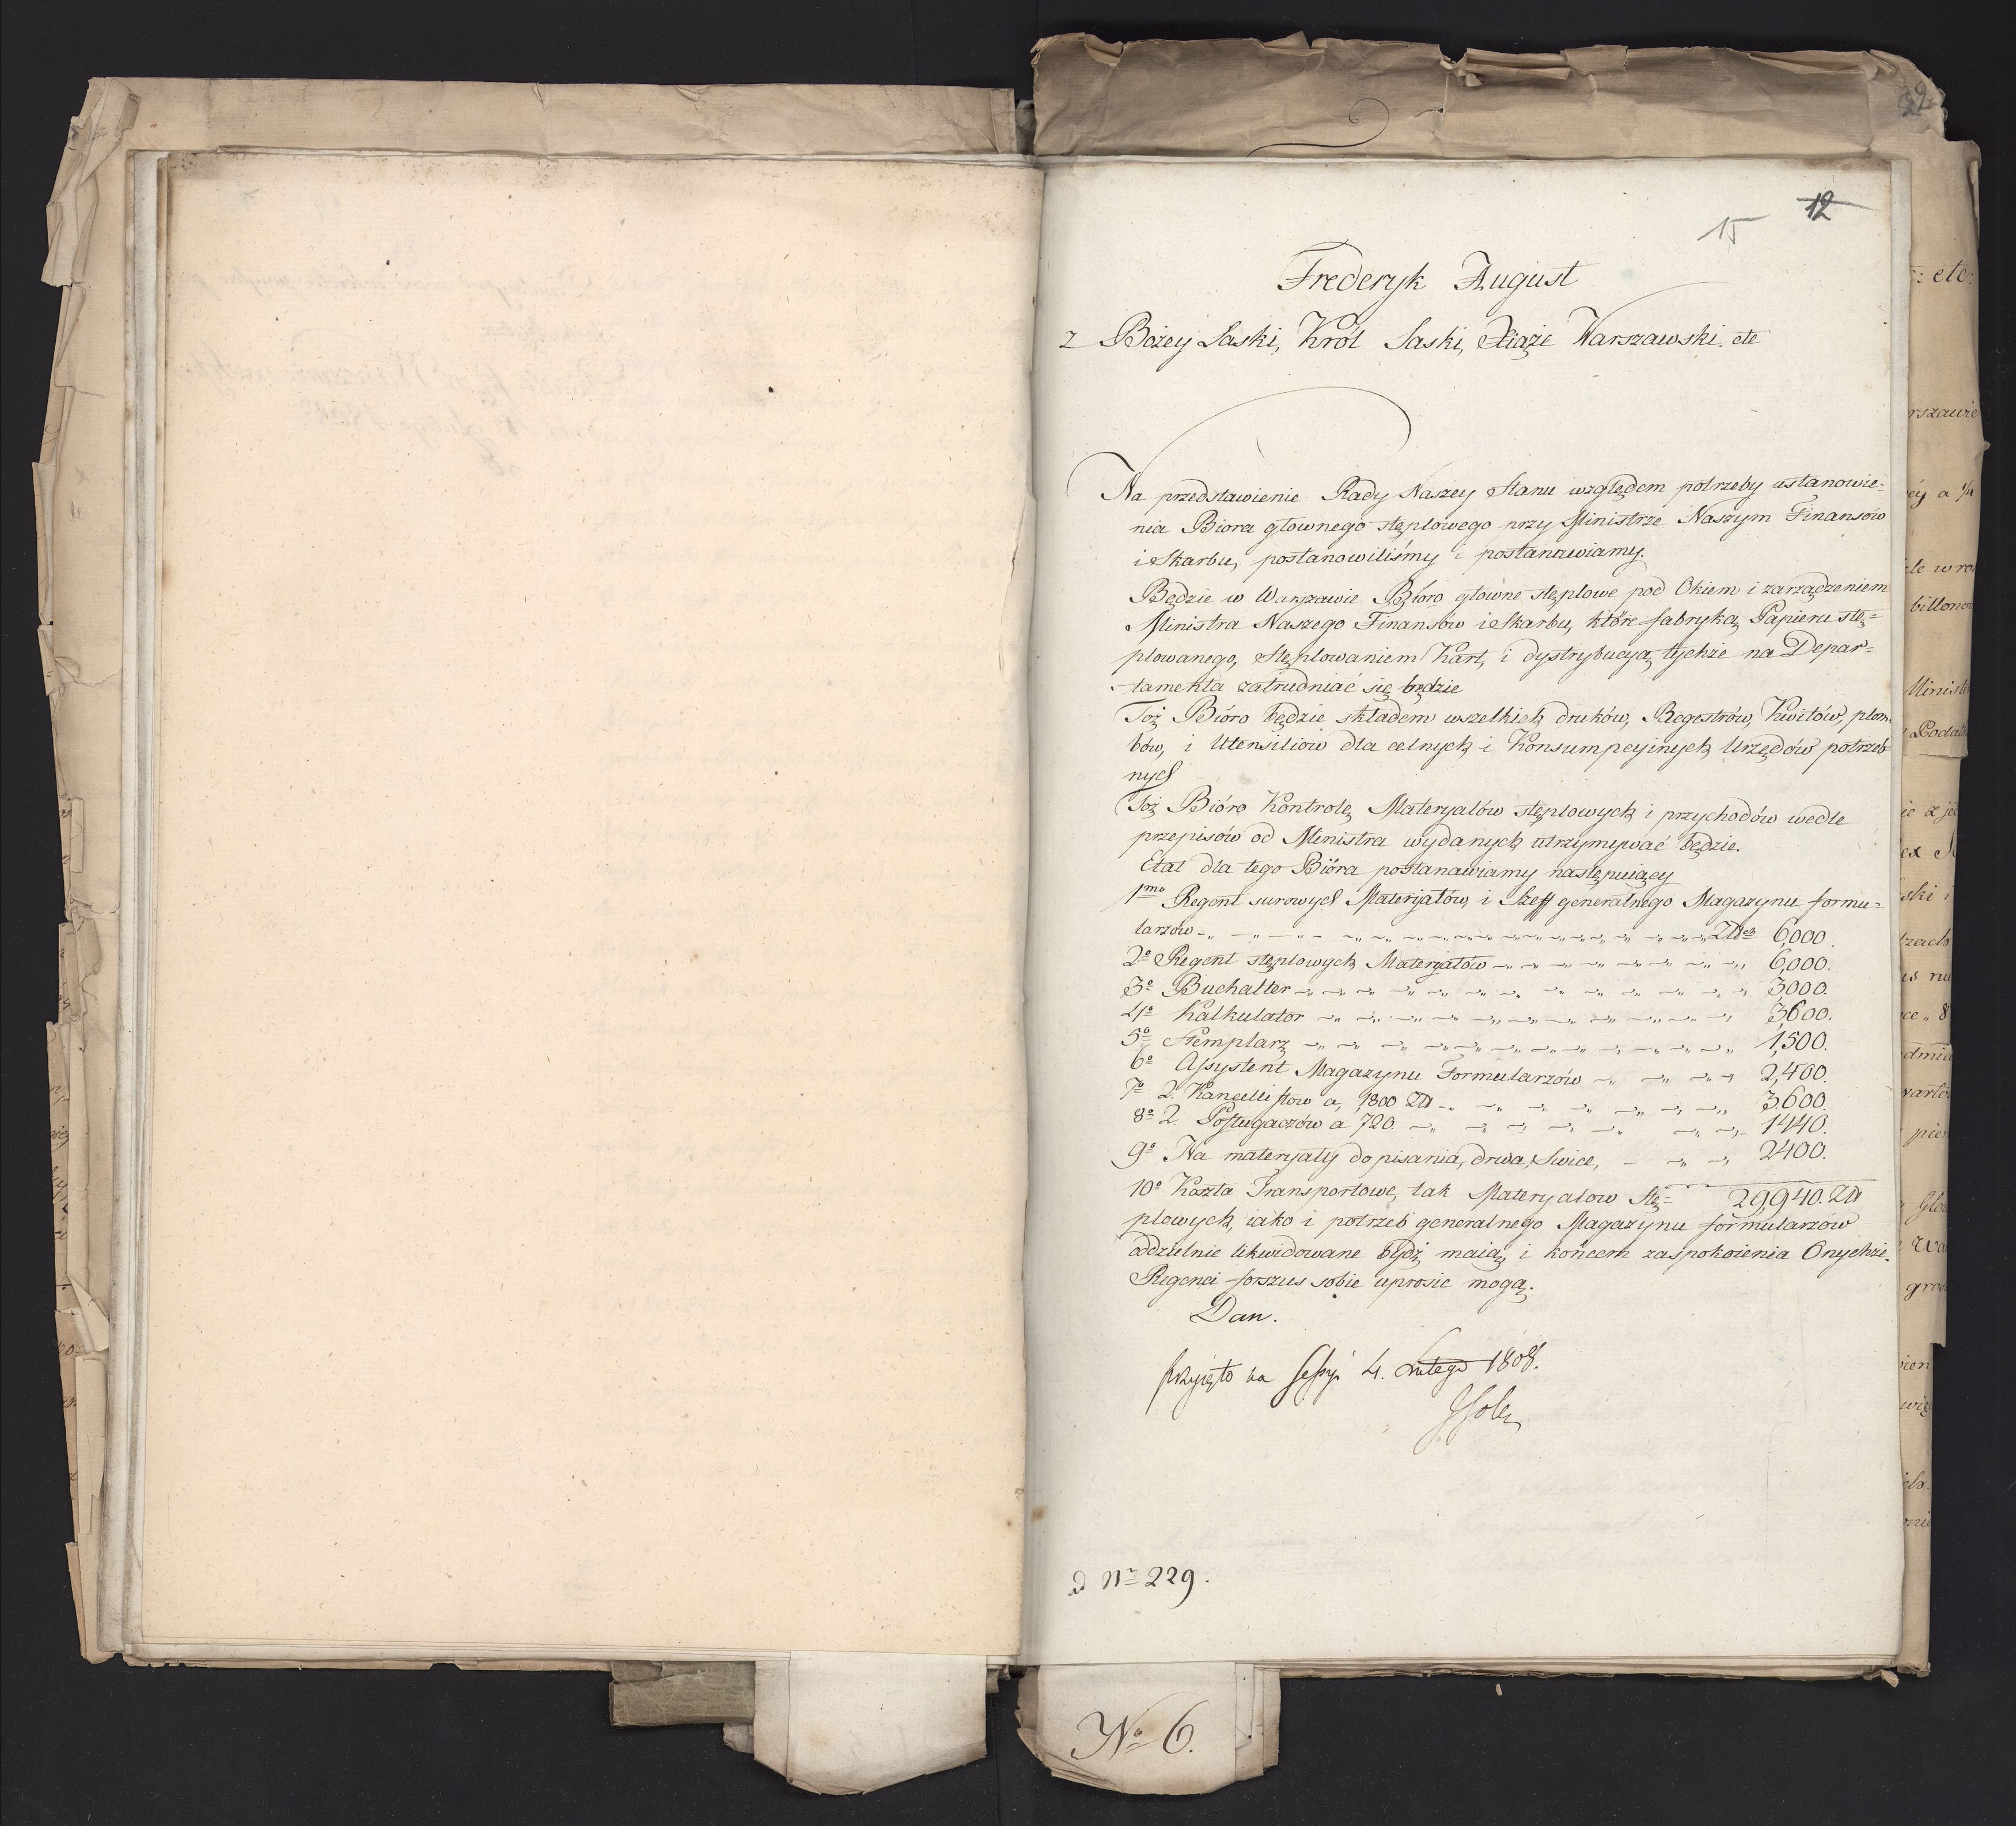 12
15
Frederyk August
z Bożey Łaski, Król Saski, Xiąże Warszawski. etc
Na przedstawienie Rady Naszey Stanu względem potrzeby ustanowie=
nia Biora głownego stęplowego przy Ministrze Naszym Finansów
i Skarbu, postanowiliśmy i postanawiamy.
Będzie w Warszawie Bióro główne stęplowe pod Okiem i zarządzeniem
Ministra Naszego Finansów i Skarbu, które fabryką Papieru stę=
plowanego, Stęplowaniem Kart, i dystrybucyą tychże na Depar=
tamenta zatrudniać się będzie
Toż Bióro będzie składem wszelkich druków, Regestrów, Kwitów, plom
bów, i Utensiliów dla celnych i Konsumpcyinych Urzędów potrzeb
nych
Toż Bióro Kontrolę Materyałów stęplowych i przychodów wedle
przepisów od Ministra wydanych utrzymywać będzie.
Etat dla tego Bióra postanawiamy następuiący
1mo Regent surowych Materyałów, i Szeff generalnego Magazynu formu=
larzów Złch 6,000.
2o Regent stęplowych Materyałów 6,000.
3o Buchalter 3000.
4o Kalkulator 3600.
5o Stemplarz 1,500.
6o Assystent Magazynu Formularzów 2,400.
7o 2. Kancellistow a, 1800 Zł 3600.
8o 2 Posługaczów a 720. 1440.
9o Na materyały do pisania, drwa, Swice, 2400.
10o Koszta Transportowe, tak Materyałow Stę= 29940. Zł
plowych, iako i potrzeb generalnego Magazynu formularzów
oddzielnie likwidowane bydź maią, i końcem zaspokoienia Onychże.
Regenci forszus sobie uprosic mogą.
Dan.
Przyięto na Sessyi 4. Lutego 1808.
ad Nr 229.
No 6.